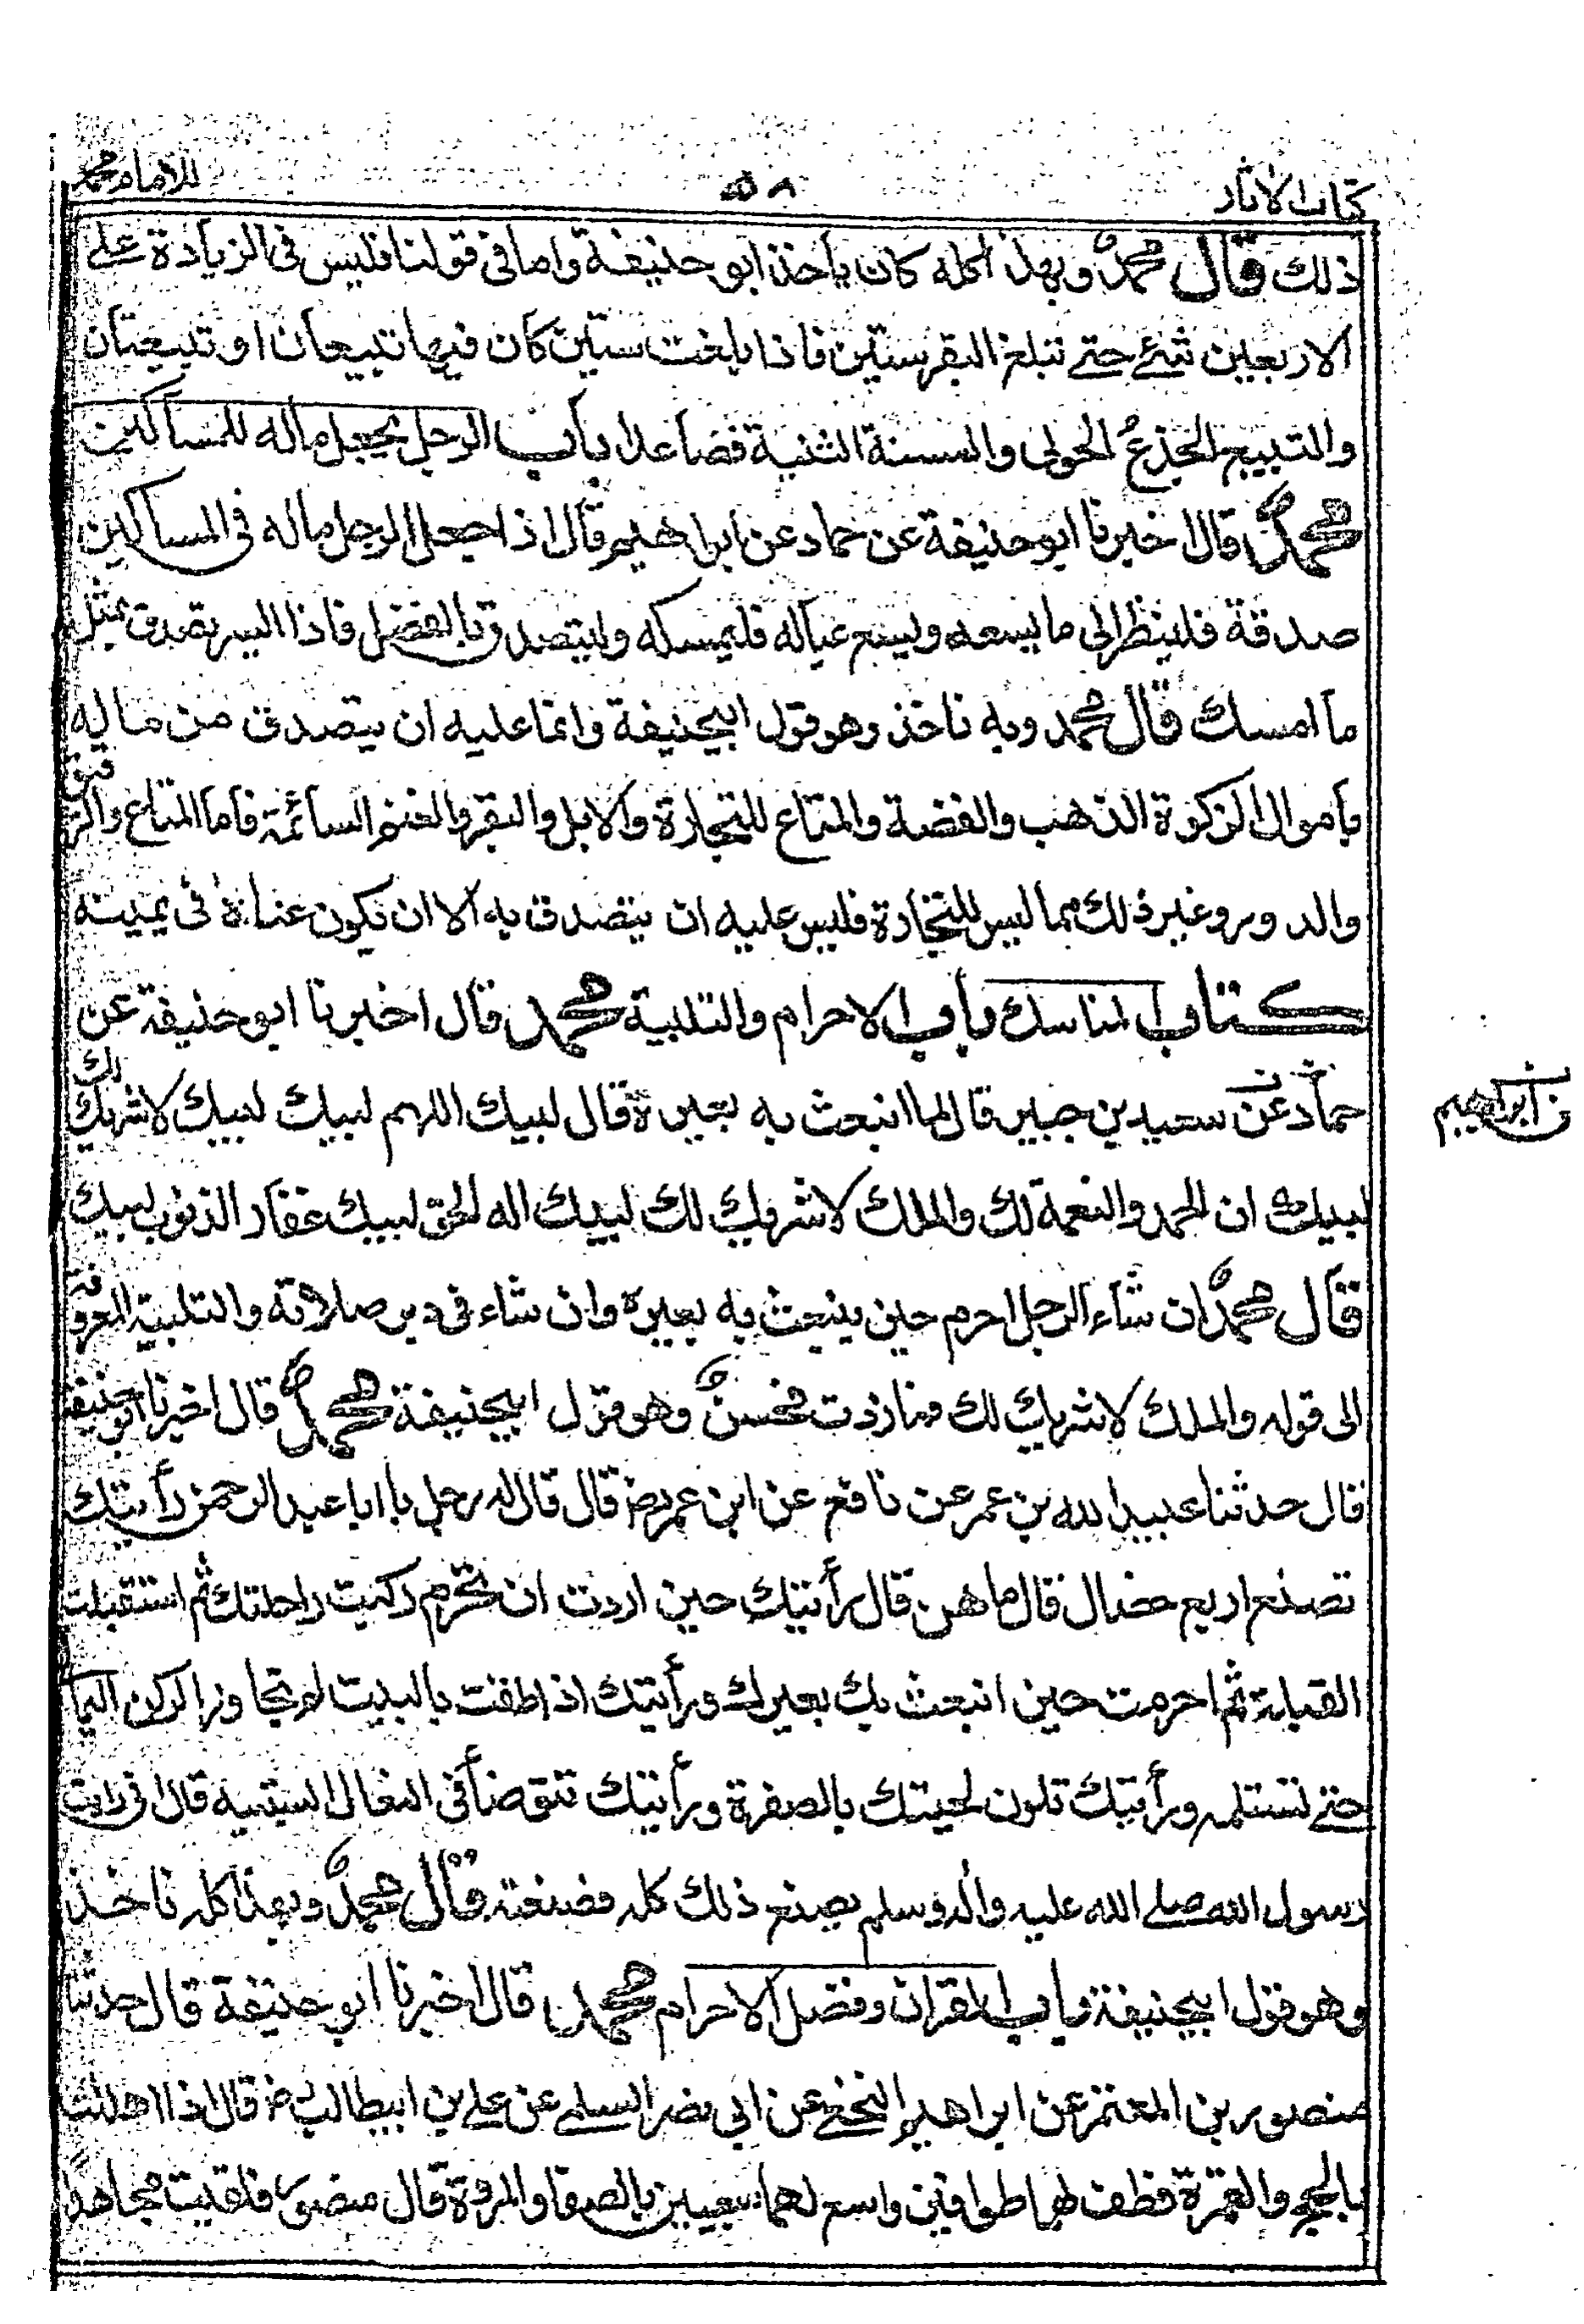 كتاب الاثار ٥٨ للامام محمد
ذلك قال محمد وبهذا كله كان يأخذ ابو حنيفة واما فى قولنا فليس فى الزيادة على
الاربعين شئ حتى تبلغ البقر ستين فاذا بلغت ستين كان فيها تبيعان او تبيعتان
والتبيع الجذع الحولى والمسنة الثنية فصاعدا باب الرجل يجعل ماله للمساكين
محمد قال اخبرنا ابو حنيفة عن حماد عن ابراهيم قال اذا جعل الرجل ماله فى المساكين
صدقة فلينظر الى ما يسعه ويسع عياله فليمسكه وليتصدق بالفضل فاذا ايسر تصدق بمثل
ما امسك قال محمد وبه ناخذ وهو قول ابيحنيفة وانما عليه ان يتصدق من ماله
باموال الزكوة الذهب والفضة والمتاع للتجارة والابل والبقر والغنم السائمة فاما المتاع والرقيق
والدور وغير ذلك مما ليس للتجارة فليس عليه ان يتصدق به الا ان يكون عناه فى يمينه
كتاب المناسك باب الاحرام والتلبية محمد قال اخبرنا ابو حنيفة عن
حماد عن سعيد بن جبير قال لما انبعث به بعيره قال لبيك اللهم لبيك لبيك لا شريك لك
ن ابراهيم
لبيك ان الحمد والنعمة لك والملك لا شريك لك لبيك اله الحق لبيك غفار الذنوب لبيك
قال محمد ان شاء الرجل احرم حين ينبعث به بعيره وان شاء فى دبر صلاته والتلبية المعروفة
الى قوله والملك لا شريك لك وما زدت فحسن وهو قول ابيحنيفة محمد قال اخبرنا ابو حنيفة
قال حدثنا عبيد الله بن عمر عن نافع عن ابن عمر رض قال قال له رجل يا ابا عبد الرحمن رأيتك
تصنع اربع خصال قال ما هن قال رأيتك حين اردت ان تحرم ركبت راحلتك ثم استقبلت
القبلة ثم احرمت حين انبعث بك بعيرك ورأيتك اذا طفت بالبيت لم تجاوز الركن اليما
حتى تستلمه ورأيتك تلون لحيتك بالصفرة ورأيتك تتوضأ فى النعال السبتية قال انى رايت
رسول الله صلى الله عليه واله وسلم يصنع ذلك كله فصنعته قال محمد وبهذا كله ناخذ
وهو قول ابيحنيفة باب القران وفضل الاحرام محمد قال اخبرنا ابو حنيفة قال حدثنا
منصور بن المعتمر عن ابراهيم النخعى عن ابى نصر السلمى عن على بن ابيطالب رض قال اذا اهللت
بالحج والعمرة فطف لهما طوافين واسع لهما سعيين بالصفا والمروة قال منصور فلقيت مجاهدا